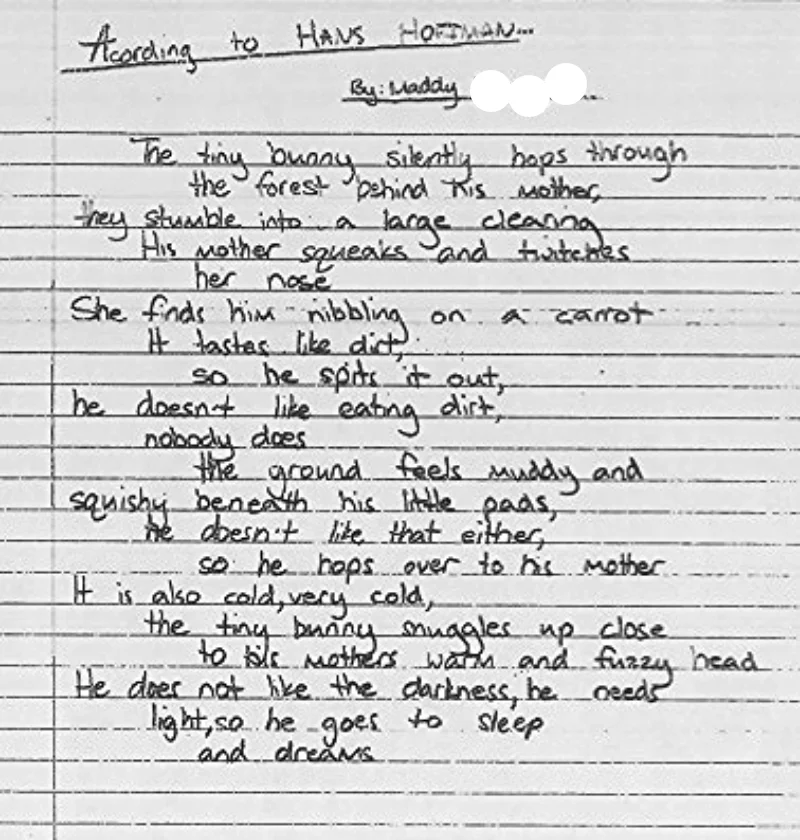 Acording to HANS HOFFMAN...
By: Maddy
The tiny bunny silently hops through
the forest behind his mother,
they stumble into a large clearing
His mother squeaks and twitches
her nose
She finds him nibbling on a carrot
It tastes like dirt,
so he spits it out,
he doesn't like eating dirt,
nobody does
the ground feels muddy and
squishy beneath his little pads,
he doesn't like that either,
so he hops over to his mother
It is also cold, very cold,
the tiny bunny snuggles up close
to his mothers warm and fuzzy head
He does not like the darkness, he needs
light, so he goes to sleep
and dreams